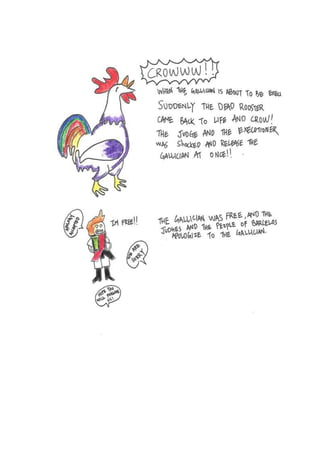 CROWWW!!
WHEN THE GALLICIAN IS ABOUT TO BE
SUDDENLY THE DEAD ROOSTER
CAME BACK TO LIFE AND CROW!
THE JUDGE AND THE EXECUTIONER
WAS SHOCKED AND RELEASE THE
GALLICIAN AT ONCE!!
I'M FREE!!
THE GALLICIAN WAS FREE, AND THE
JUDGES AND THE PEOPLE OF BARCELOS
APOLOGIZE TO THE GALLICIAN.
WE ARE
SORRY
HOPE YOU
WILL FORGIVE
US!